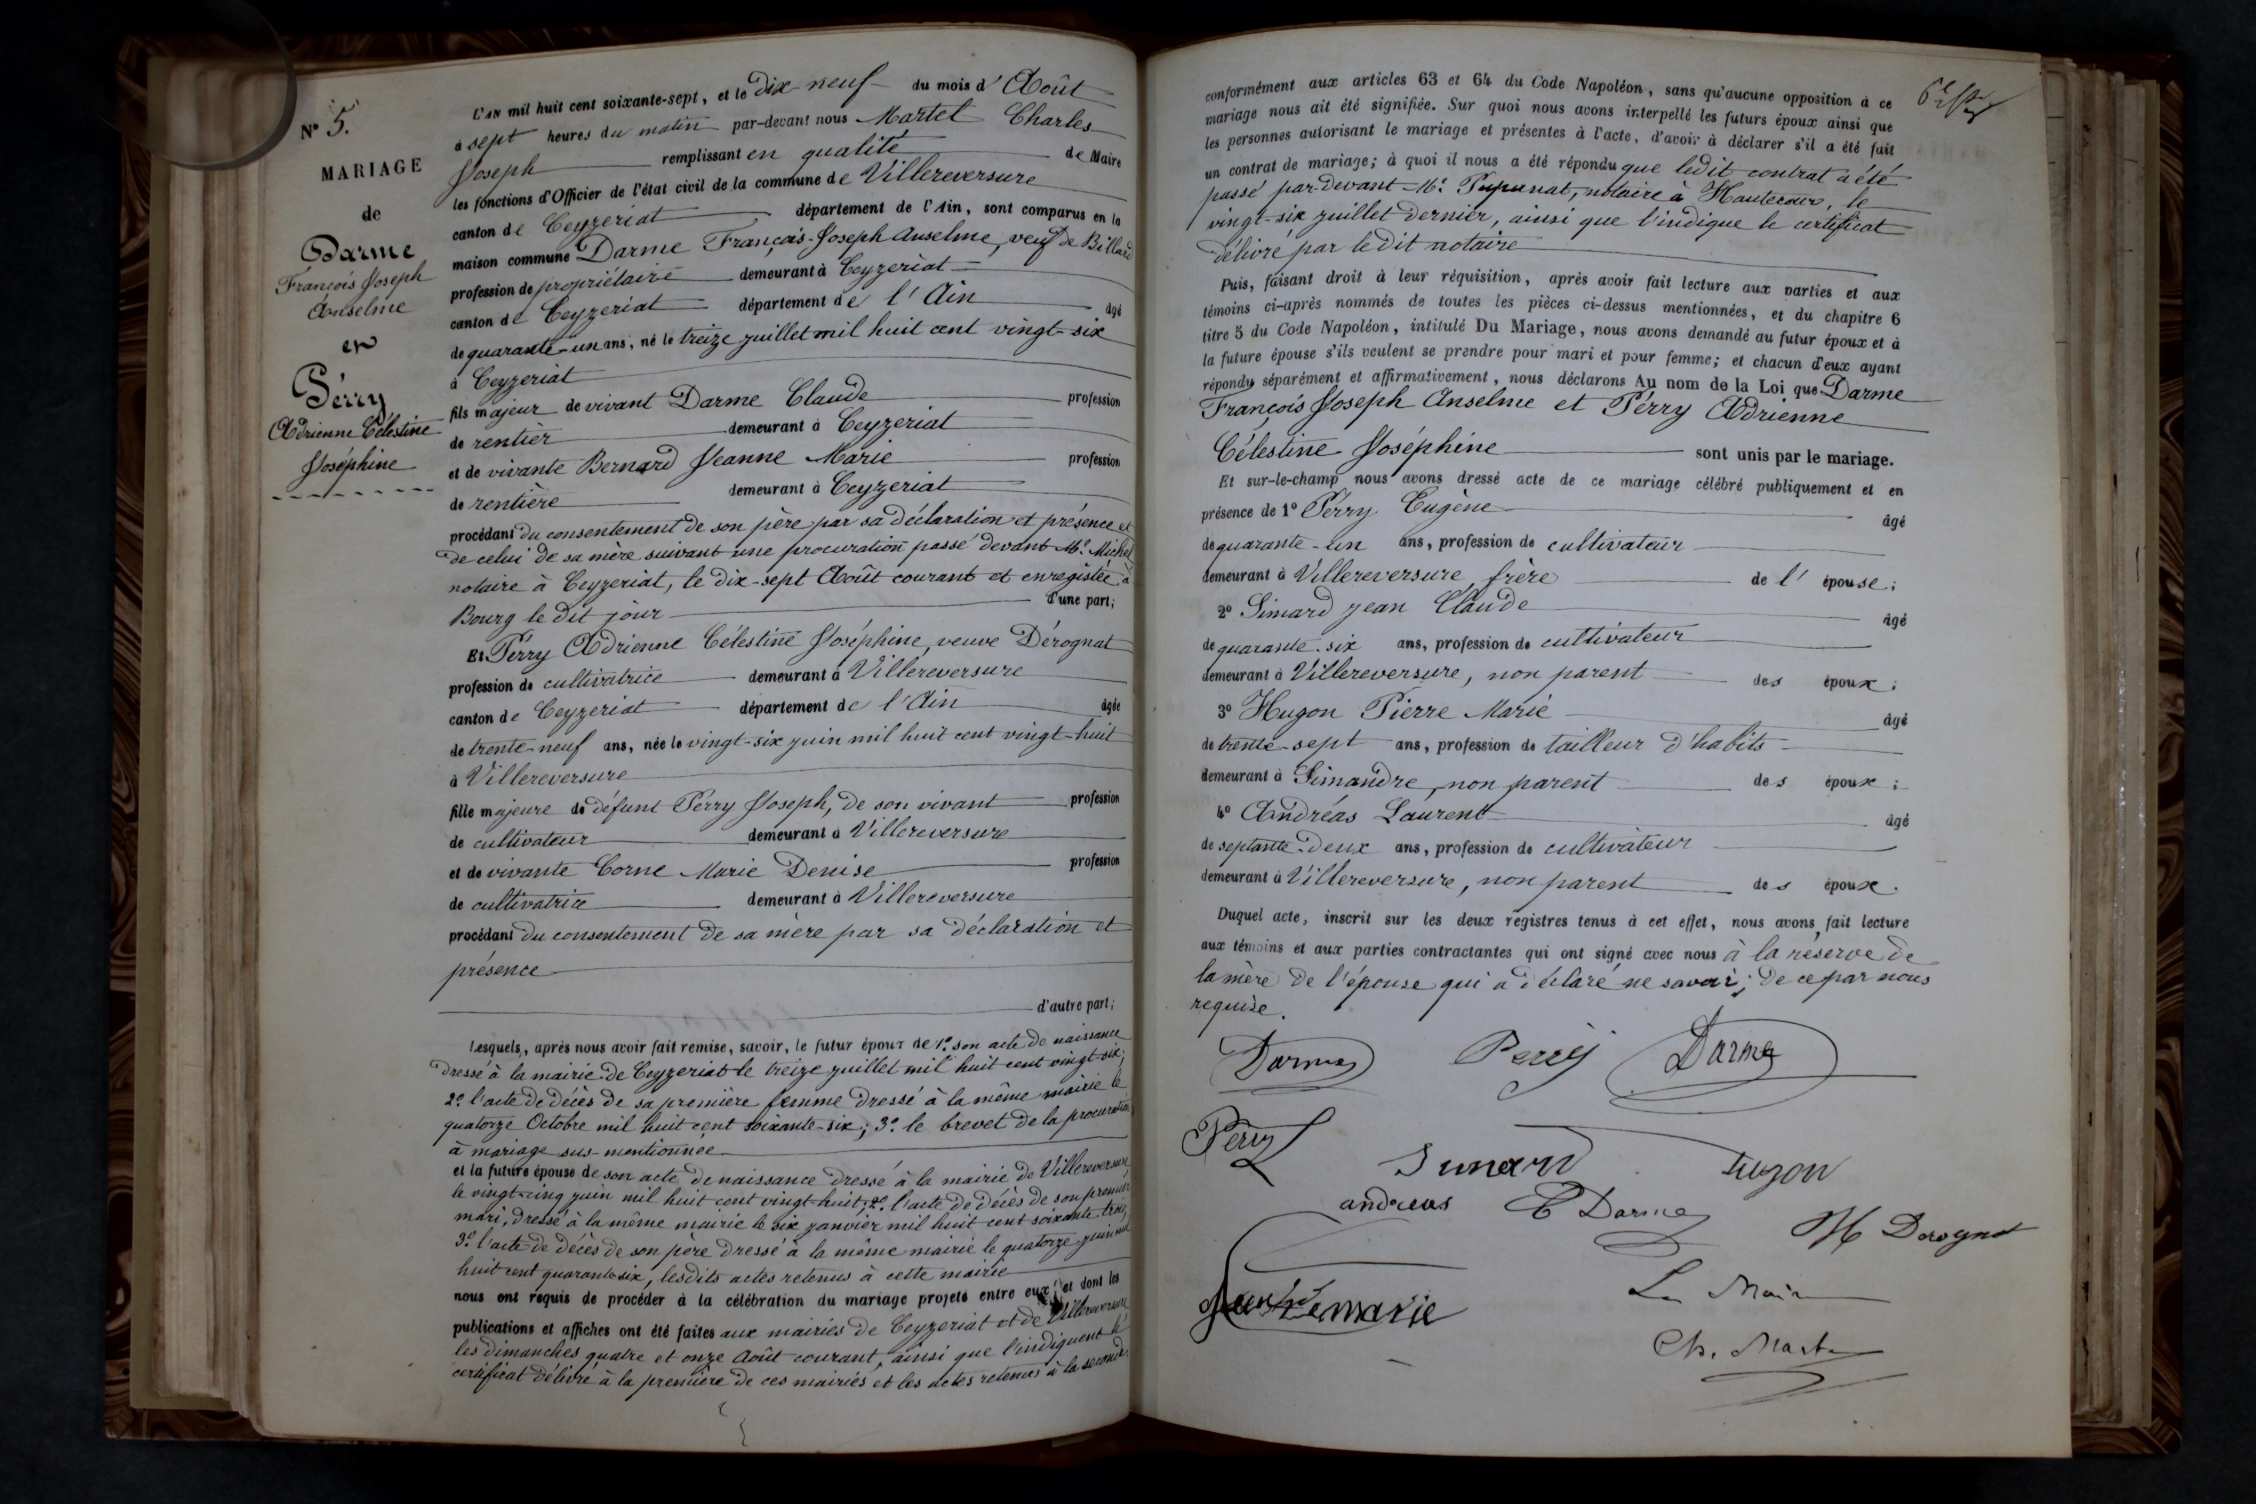 N° 5.
MARIAGE
de
Darme
François Joseph
Anselme
et
Pérry
Adrienne Célestine
Joséphine
L'an mil huit cent soixante-sept, et le dix-neuf du mois d'Août
à sept heures du matin par-devant nous Martel Charles
Joseph remplissant en qualité de Maire
les fonctions d'Officier de l'état civil de la commune de Villereversure
canton de Ceyzeriat département de l'Ain, sont comparus en la
maison commune Darme François-Joseph Anselme, veuf de Billard
profession de propriétaire demeurant à Ceyzeriat
canton de Ceyzeriat département de l'Ain âgé
de quarante-un ans, né le treize juillet mil huit cent vingt-six
à Ceyzeriat
fils majeur de vivant Darme Claude profession
de rentier demeurant à Ceyzeriat
et de vivante Bernard Jeanne Marie profession
de rentière demeurant à Ceyzeriat
procédant du consentement de son père par sa déclaration et présence et
de celui de sa mère suivant une procuration passé devant Me. Michel
notaire à Ceyzeriat, le dix-sept Août courant et enregistée à
Bourg le dit jour d'une part;
Et Pérry Adrienne Célestine Joséphine, veuve Dérognat
profession de cultivatrice demeurant à Villereversure
canton de Ceyzeriat département de l'Ain âgée
de trente-neuf ans, née le vingt-six juin mil huit cent vingt-huit
à Villereversure
fille majeure de défunt Pérry Joseph, de son vivant profession
de cultivateur demeurant à Villereversure
et de vivante Corne Marie Denise profession
de cultivatrice demeurant à Villereversure
procédant du consentement de sa mère par sa déclaration et
présence
d'autre part;
Lesquels, après nous avoir fait remise, savoir, le futur époux de 1°. son acte de naissance
dressé à la mairie de Ceyzeriat le treize juillet mil huit cent vingt-six;
2°. l'acte de décès de sa première femme dressé à la même mairie le
quatorze Octobre mil huit cent soixante-six; 3°. le brevet de la procuration
à mariage sus-mentionnée
et la future épouse de son acte de naissance dressé à la mairie de Villereversure
le vingt-cinq juin mil huit cent vingt-huit; 2°. l'acte de décès de son premier
mari, dressé à la même mairie le six janvier mil huit cent soixante-trois,
3°. l'acte de décès de son père dressé à la même mairie le quatorze juin mil
huit cent quarante six, lesdits actes retenus à cette mairie
nous ont requis de procéder à la célébration du mariage projeté entre eux, et dont les
publications et affiches ont été faites aux mairies de Ceyzeriat et de Villereversure
les dimanches quatre et onze Août courant, ainsi que l'indiquent le
certificat délivré à la première de ces mairies et les actes retenus à la seconde
conformément aux articles 63 et 64 du Code Napoléon, sans qu'aucune opposition à ce
mariage nous ait été signifiée. Sur quoi nous avons interpellé les futurs époux ainsi que
les personnes autorisant le mariage et présentes à l'acte, d'avoir à déclarer s'il a été fait
un contrat de mariage; à quoi il nous a été répondu que ledit contrat a été
passé par-devant Me. Pupunat, notaire à Hautecour, le
vingt-six juillet dernier, ainsi que l'indique le certificat
délivré par le dit notaire
Puis, faisant droit à leur réquisition, après avoir fait lecture aux parties et aux
témoins ci-après nommés de toutes les pièces ci-dessus mentionnées, et du chapitre 6
titre 5 du Code Napoléon, intitulé Du Mariage, nous avons demandé au futur époux et à
la future épouse s'ils veulent se prendre pour mari et pour femme; et chacun d'eux ayant
répondu séparément et affirmativement, nous déclarons Au nom de la Loi que Darme
François Joseph Anselme et Pérry Adrienne
Célestine Joséphine sont unis par le mariage.
Et sur-le-champ nous avons dressé acte de ce mariage célébré publiquement et en
présence de 1° Pérry Eugène âgé
de quarante-un ans, profession de cultivateur
demeurant à Villereversure, frère de l'épouse;
2° Simard Jean Claude âgé
de quarante-six ans, profession de cultivateur
demeurant à Villereversure, non parent des époux;
3° Hugon Pierre Marie âgé
de trente-sept ans, profession de tailleur d'habits
demeurant à Simandre, non parent des époux;
4° Andréas Laurent âgé
de septante-deux ans, profession de cultivateur
demeurant à Villereversure, non parent des époux.
Duquel acte, inscrit sur les deux registres tenus à cet effet, nous avons fait lecture
aux témoins et aux parties contractantes qui ont signé avec nous à la réserve de
la mère de l'épouse qui a déclaré ne savoir; de ce par nous
requise.
Darme Perry Darme
Pérry Simard Hugon
andreas C Darme M Derognat
Le Maire
Ch. Martel